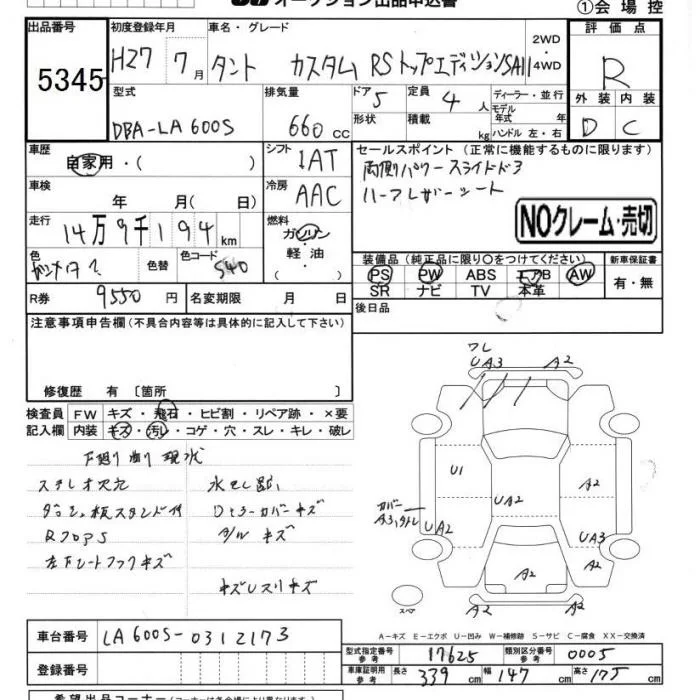 オークション出品申込書
①会場控
出品番号 初度登録年月 車名・グレード 評価点
5345 H27 7月 タント カスタム RSトップエディションSAII 2WD・4WD R
型式 排気量 ドア 定員 ディーラー・並行 外装 内装
DBA-LA600S 660cc 5 4人 モデル年式 年式 D C
形状 積載 kg ハンドル 左・右
車歴 自家用・( ) シフト IAT セールスポイント(正常に機能するものに限ります)
両側パワースライドドア
ハーフレザーシート
車検 年 月( 日) 冷房 AAC
NOクレーム・売切
走行 14万9千194km 燃料 ガソリン・軽油 ( )
色 色替 色コード S40
装備品(純正品に限り○をつけてください) 新車保証書
PS PW ABS エアB AW 有・無
SR ナビ TV 本革
R券 9550円 名変期限 月 日
後日品
注意事項申告欄(不具合内容等は具体的に記入して下さい)
修復歴 有〔箇所 〕
検査員記入欄 FW キズ・飛石・ヒビ割・リペア跡・×要
内装 キズ・汚れ・コゲ・穴・スレ・キレ・破レ
ワレ
UA3 A2
U1 A2
UA2
カバー
UA2 UA3
A2 A2
スペア
下廻り 現状
ステレオ欠品
キズ
A-キズ E-エクボ U-凹み W-補修跡 S-サビ C-腐食 XX-交換済
車台番号 LA600S-0312173
型式指定番号 参考 17625 類別区分番号 参考 0005
登録番号
車庫証明用 参考 長さ 339cm 幅 147cm 高さ 175cm
希望出品コーナー